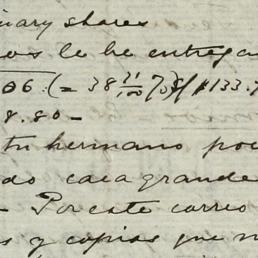 inary shares
os le he entrega
06. (= 38 31/100 %) $(133.7
8.80-
tu hermano por
do casa grande
- Por este correo
s y copias que m